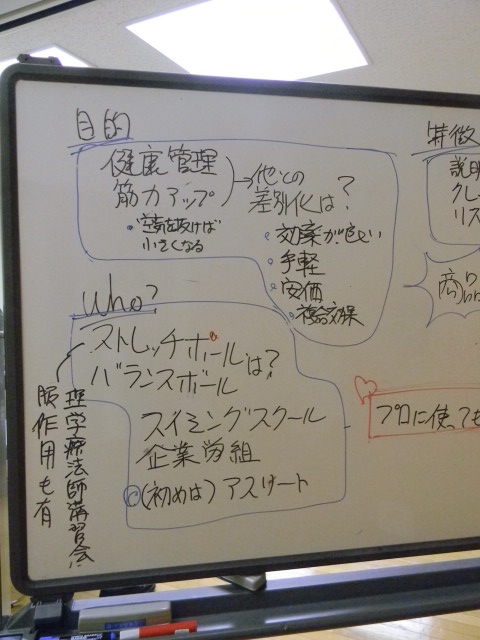 目的
健康管理
筋力アップ
・空気を抜けば
小さくなる
他との
差別化は?
効果が良い
手軽
安価
複合効果
Who?
ストレッチポールは?
バランスボール
スイミングスクール
企業労組
◎(初めは)アスリート
理学療法師講習会
服作用も有
特徴
説明
クレ
リス
商品
プロに使っても